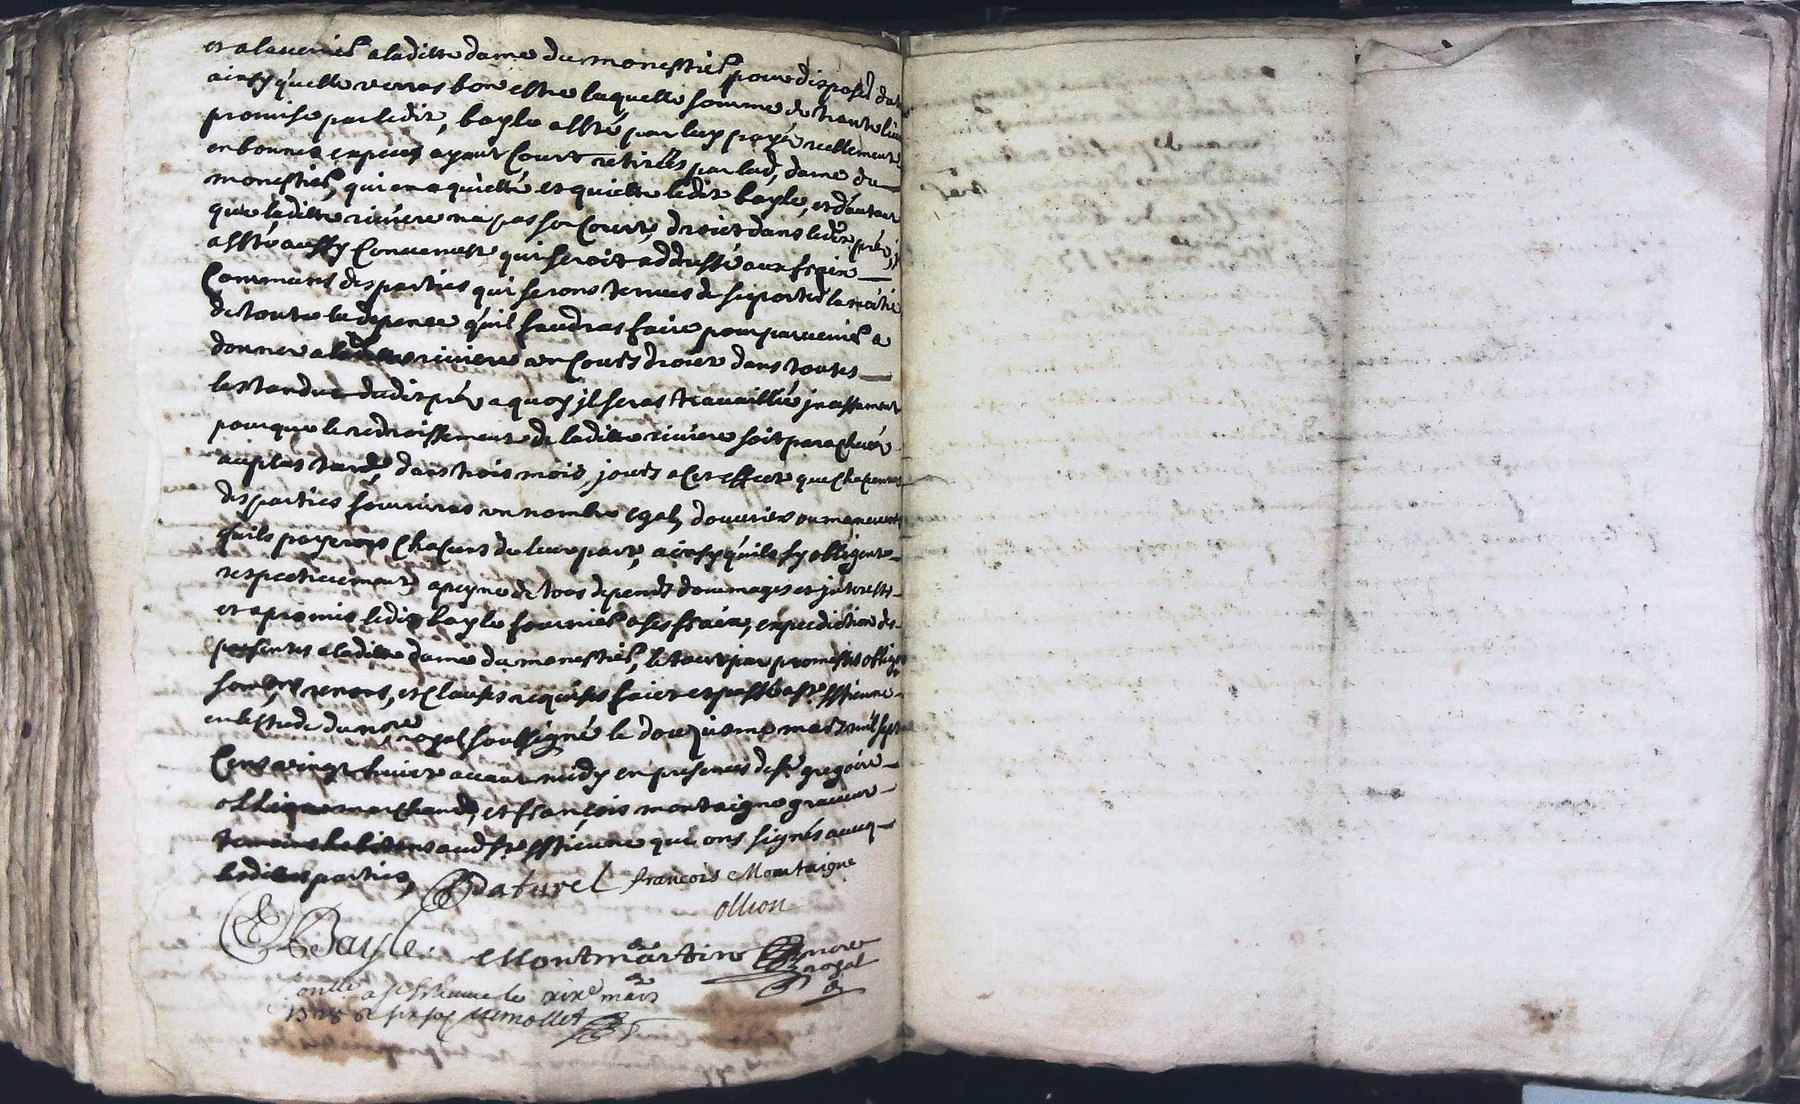 et a lavenir a laditte dame du monestier pour disposer
ainsy quelle verras bon estre laquelle somme de trante livres
promise par ledit bayle a esté par luy payé reellement
en bonnes especes ayant court retirées par lad. dame du
monestier, qui en a quietté et quiette ledit bayle, et dautant
que laditte riviere na pas son court droict dans ledit pré, jl
a esté aussy convenust qui seroit addressé aux fraix
communs des parties qui seront tenues de suporter la moitié
de toute la depence quil faudras faire pour parvenir a
donner a laditte riviere un cours droict dans toutes
lestandue dudit pré a quoy jl seras travaillié
pour que le redroissement de laditte riviere soit parachevé
au plus tard, dans trois mois, a cet effect que chacunnes
des parties fournires un nombre egal, douvriers ou maneuvres
quils payeront chacuns de leur part, ainsy quils sy obligent
respectivement, a peyne de tous depends dommages et jnterests
et a promis ledit bayle fournir a ses fraix, expediction des
presentes a laditte dame du monestier, le tout par promesses oblig
renons, et clauses requises faict et passé a St Estienne
en lestude du nre royal soussigné le douzieme mars mil sept
cens vingt huict avant midy en presences de sr gregoire
ollion marchand, et françois montaigne graveur
temoins habitens aud St Estienne qui ont signés avecq
lesdittes parties,
Daturel francois Montaigne
ollion
Bayle Montmartin nore
royal
onlle a St Estienne le xixe mars
1728 Remollet